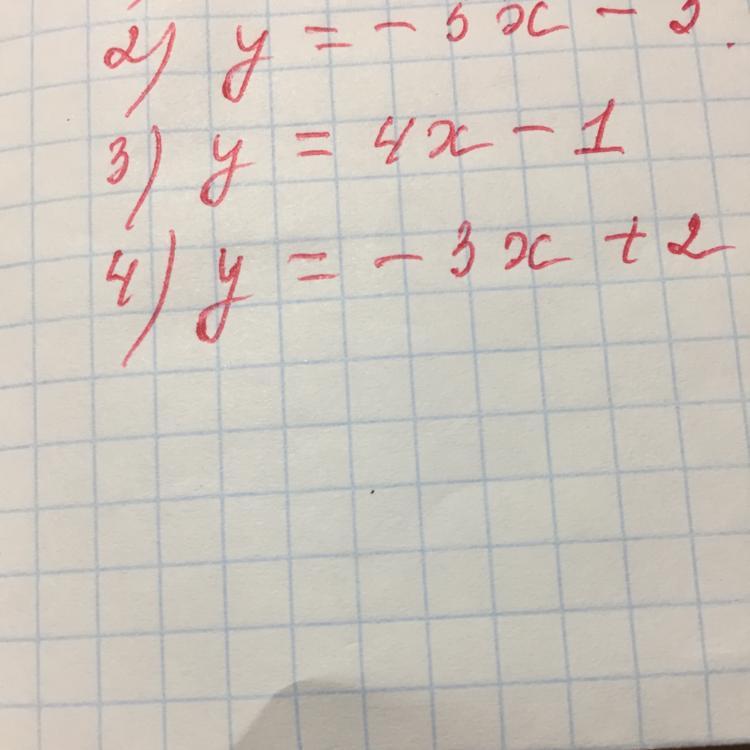 2) y = - 5x -
3) y = 4x - 1
4) y = - 3x + 2